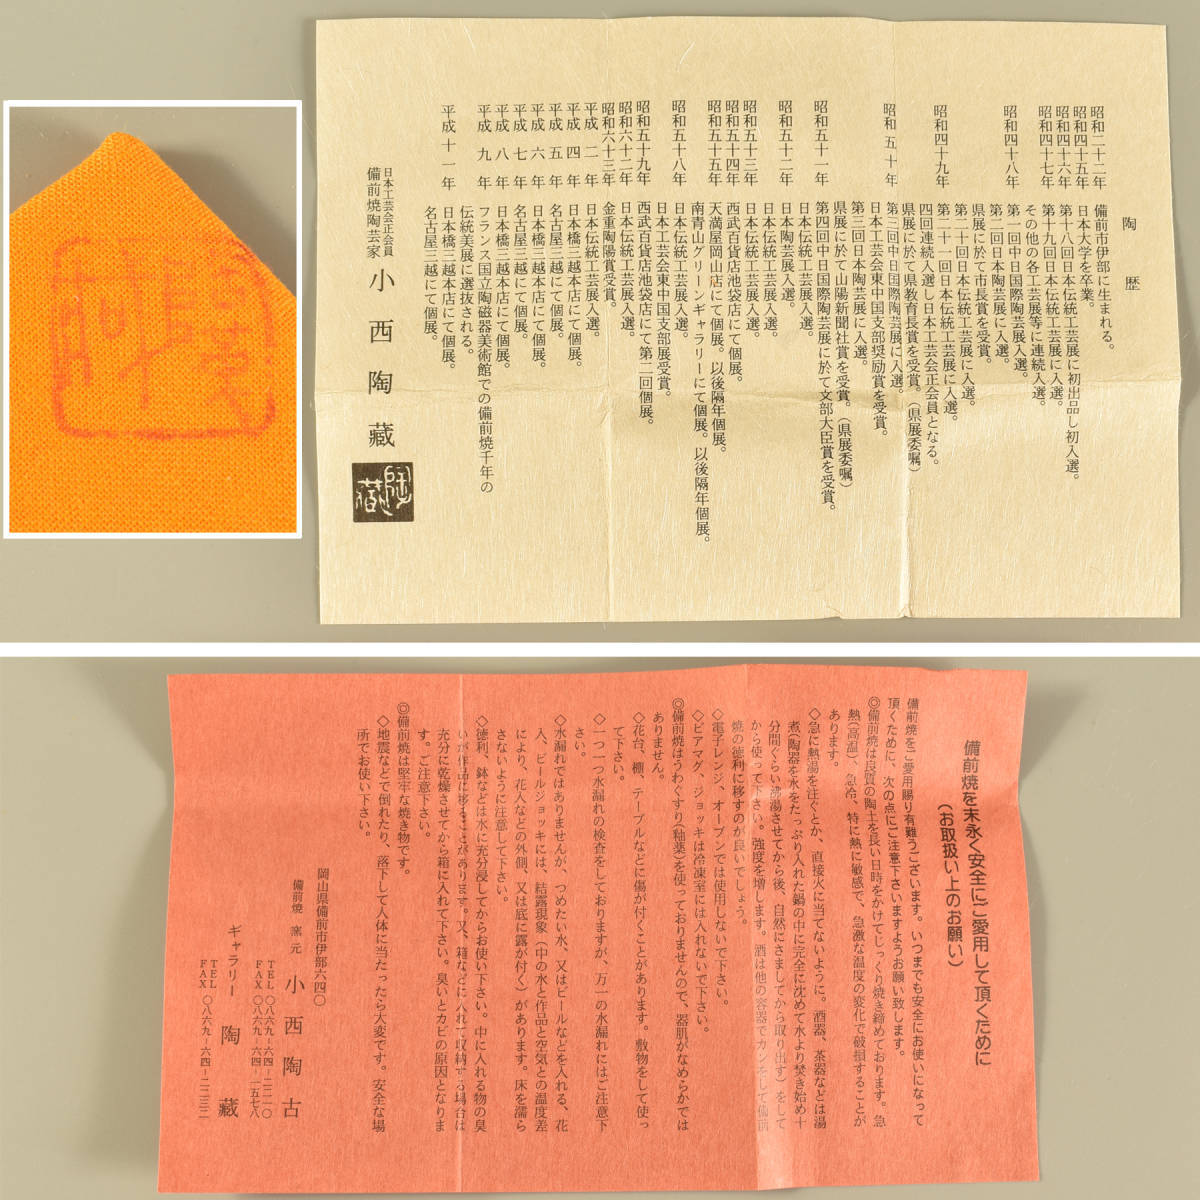 陶歴
昭和二十二年 備前市伊部に生まれる。
昭和四十五年 日本大学を卒業。
昭和四十六年 第十八回日本伝統工芸展に初出品し初入選。
昭和四十七年 第十九回日本伝統工芸展に入選。
その他の各工芸展等に連続入選。
昭和四十八年 第一回中日国際陶芸展入選。
第二回日本陶芸展に入選。
県展に於て市長賞を受賞。
第二十回日本伝統工芸展に入選。
昭和四十九年 第二十一回日本伝統工芸展に入選。
四回連続入選し日本工芸会正会員となる。
県展に於て県教育長賞を受賞。(県展委嘱)
昭和五十年 第三回中日国際陶芸展に入選。
日本工芸会東中国支部奨励賞を受賞。
第三回日本陶芸展に入選。
県展に於て山陽新聞社賞を受賞。(県展委嘱)
昭和五十一年 第四回中日国際陶芸展に於て文部大臣賞を受賞。
日本伝統工芸展入選。
昭和五十二年 日本陶芸展入選。
日本伝統工芸展入選。
昭和五十三年 日本伝統工芸展入選。
昭和五十四年 西武百貨店池袋店にて個展。
昭和五十五年 天満屋岡山店にて個展。以後隔年個展。
南青山グリーンギャラリーにて個展。以後隔年個展。
昭和五十八年 日本伝統工芸展入選。
日本工芸会東中国支部展受賞。
昭和五十九年 西武百貨店池袋店にて第二回個展。
昭和六十二年 日本伝統工芸展入選。
昭和六十三年 金重陶陽賞受賞。
平成二年 日本伝統工芸展入選。
平成四年 日本橋三越本店にて個展。
平成五年 名古屋三越にて個展。
平成六年 日本橋三越本店にて個展。
平成七年 名古屋三越にて個展。
平成八年 日本橋三越本店にて個展。
平成九年 フランス国立陶磁器美術館での備前焼千年の
伝統美展に選抜される。
日本橋三越本店にて個展。
平成十一年 名古屋三越にて個展。
日本工芸会正会員
備前焼陶芸家 小西陶藏
陶藏
備前焼を末永く安全にご愛用して頂くために
(お取扱い上のお願い)
備前焼をご愛用賜り有難うございます。いつまでも安全にお使いになって
頂くために、次の点にご注意下さいますようお願い致します。
◎備前焼は良質の陶土を長い日時をかけてじっくり焼き締めております。急
熱(高温)、急冷、特に熱に敏感で、急激な温度の変化で破損することが
あります。
◇急に熱湯を注ぐとか、直接火に当てないように。酒器、茶器などは湯
煮(陶器を水をたっぷり入れた鍋の中に完全に沈めて水より焚き始め十
分間ぐらい沸湯させてから後、自然にさましてから取り出す)をして
から使って下さい。強度を増します。酒は他の容器でカンをして備前
焼の徳利に移すのが良いでしょう。
◇電子レンジ、オーブンでは使用しないで下さい。
◇ビアマグ、ジョッキは冷凍室には入れないで下さい。
◎備前焼はうわぐすり(釉薬)を使っておりませんので、器肌がなめらかでは
ありません。
◇花台、棚、テーブルなどに傷が付くことがあります。敷物をして使っ
て下さい。
◇一つ一つ水漏れの検査をしておりますが、万一の水漏れにはご注意下
さい。
◇水漏れではありませんが、つめたい水、又はビールなどを入れる、花
入、ビールジョッキには、結露現象(中の水と作品と空気との温度差
により、花入などの外側、又は底に露が付く)があります。床を濡ら
さないように注意して下さい。
◇徳利、鉢などは水に充分浸してからお使い下さい。中に入れる物の臭
いが作品に移ることがあります。又、箱などに入れて収納する場合は
充分に乾燥させてから箱に入れて下さい。臭いとカビの原因となりま
す。ご注意下さい。
◎備前焼は堅牢な焼き物です。
◇地震などで倒れたり、落下して人体に当たったら大変です。安全な場
所でお使い下さい。
岡山県備前市伊部六四〇
備前焼窯元 小西陶古
TEL 〇八六九-六四-二二一〇
FAX 〇八六九-六四-一五七八
ギャラリー 陶藏
TEL
FAX 〇八六九-六四-二二三二